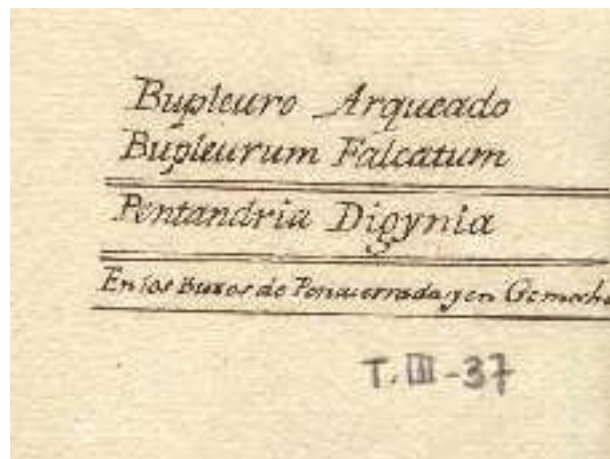 Bupleuro Arqueado
Bupleurum Falcatum
Pentandria Digynia
En los Buxos de Penacerrada y en
T. III - 37